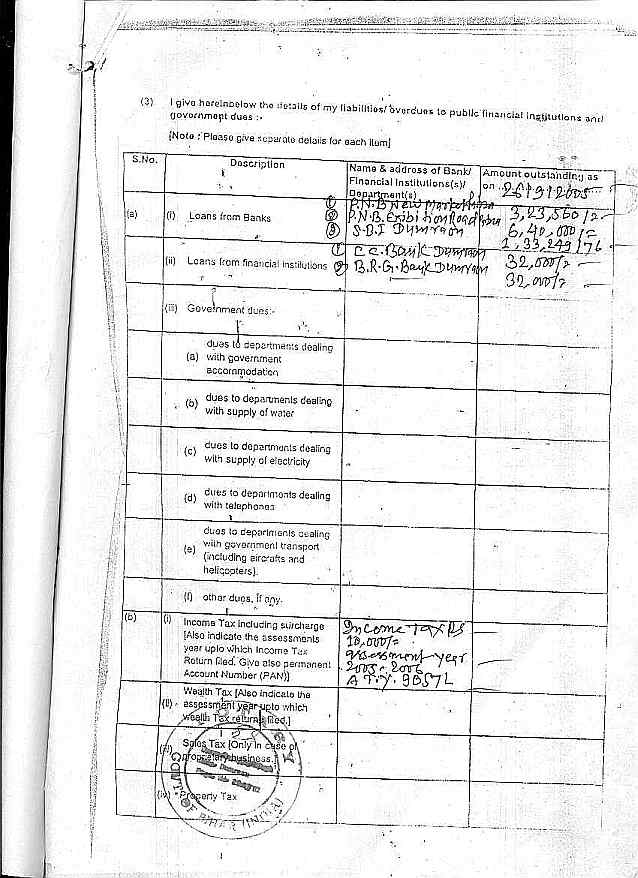 (3) I give hereinbelow the details of my liabilities/overdues to public financial institutions and
government dues :-
[Note : Please give separate details for each item]
S.No. Description Name & address of Bank/ Financial Institutions(s)/ Department(s) Amount outstanding as on 26/9/2005
(a) (i) Loans from Banks
① P.N.B New 3,23,560/=
② P.N.B. Exibition Road 6,40,000/=
③ S.B.I Dumraon 1,33,249/76
(ii) Loans from financial institutions
① C.C. Bank Dumraon 32,000/=
② B.R.G. Bank Dumraon 32,000/=
(iii) Government dues:-
(a) dues to departments dealing
with government
accommodation
(b) dues to departments dealing
with supply of water
(c) dues to departments dealing
with supply of electricity
(d) dues to departments dealing
with telephones
(e) dues to departments dealing
with government transport
(including aircrafts and
helicopters).
(f) other dues, if any.
(b) (i) Income Tax including surcharge
[Also indicate the assessments
year upto which Income Tax
Return filed. Give also permanent
Account Number (PAN)]
Income Tax RS
10,000/=
assessment year
2005-2006
(ii) Wealth Tax [Also indicate the
assessment year upto which
wealth Tax return filed.]
(iii) Sales Tax [Only in case of
proprietary business.]
(iv) Property Tax
GOVT. OF BIHAR (INDIA)